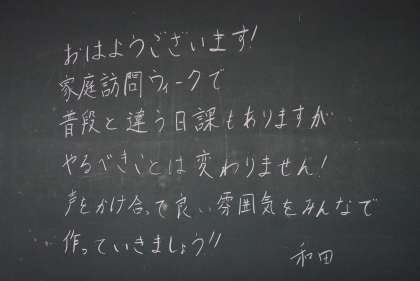 おはようございます!
家庭訪問ウィークで
普段と違う日課もありますが
やるべきことは変わりません!
声をかけ合って良い雰囲気をみんなで
作っていきましょう!!
和田